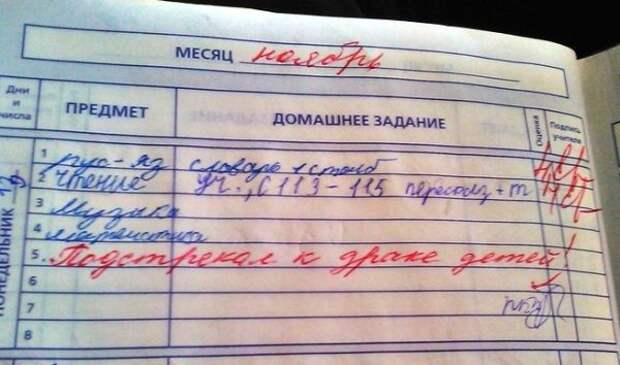 МЕСЯЦ ноябрь
Дни и числа ПРЕДМЕТ ДОМАШНЕЕ ЗАДАНИЕ Оценка Подпись учителя
ПОНЕДЕЛЬНИК
1 рус-яз словарь 1 столб
2 Чтение Уч., С 113-115 пересказ + т
3 Музыка
4 математика
5. Подстрекал к драке детей!
6
7
8